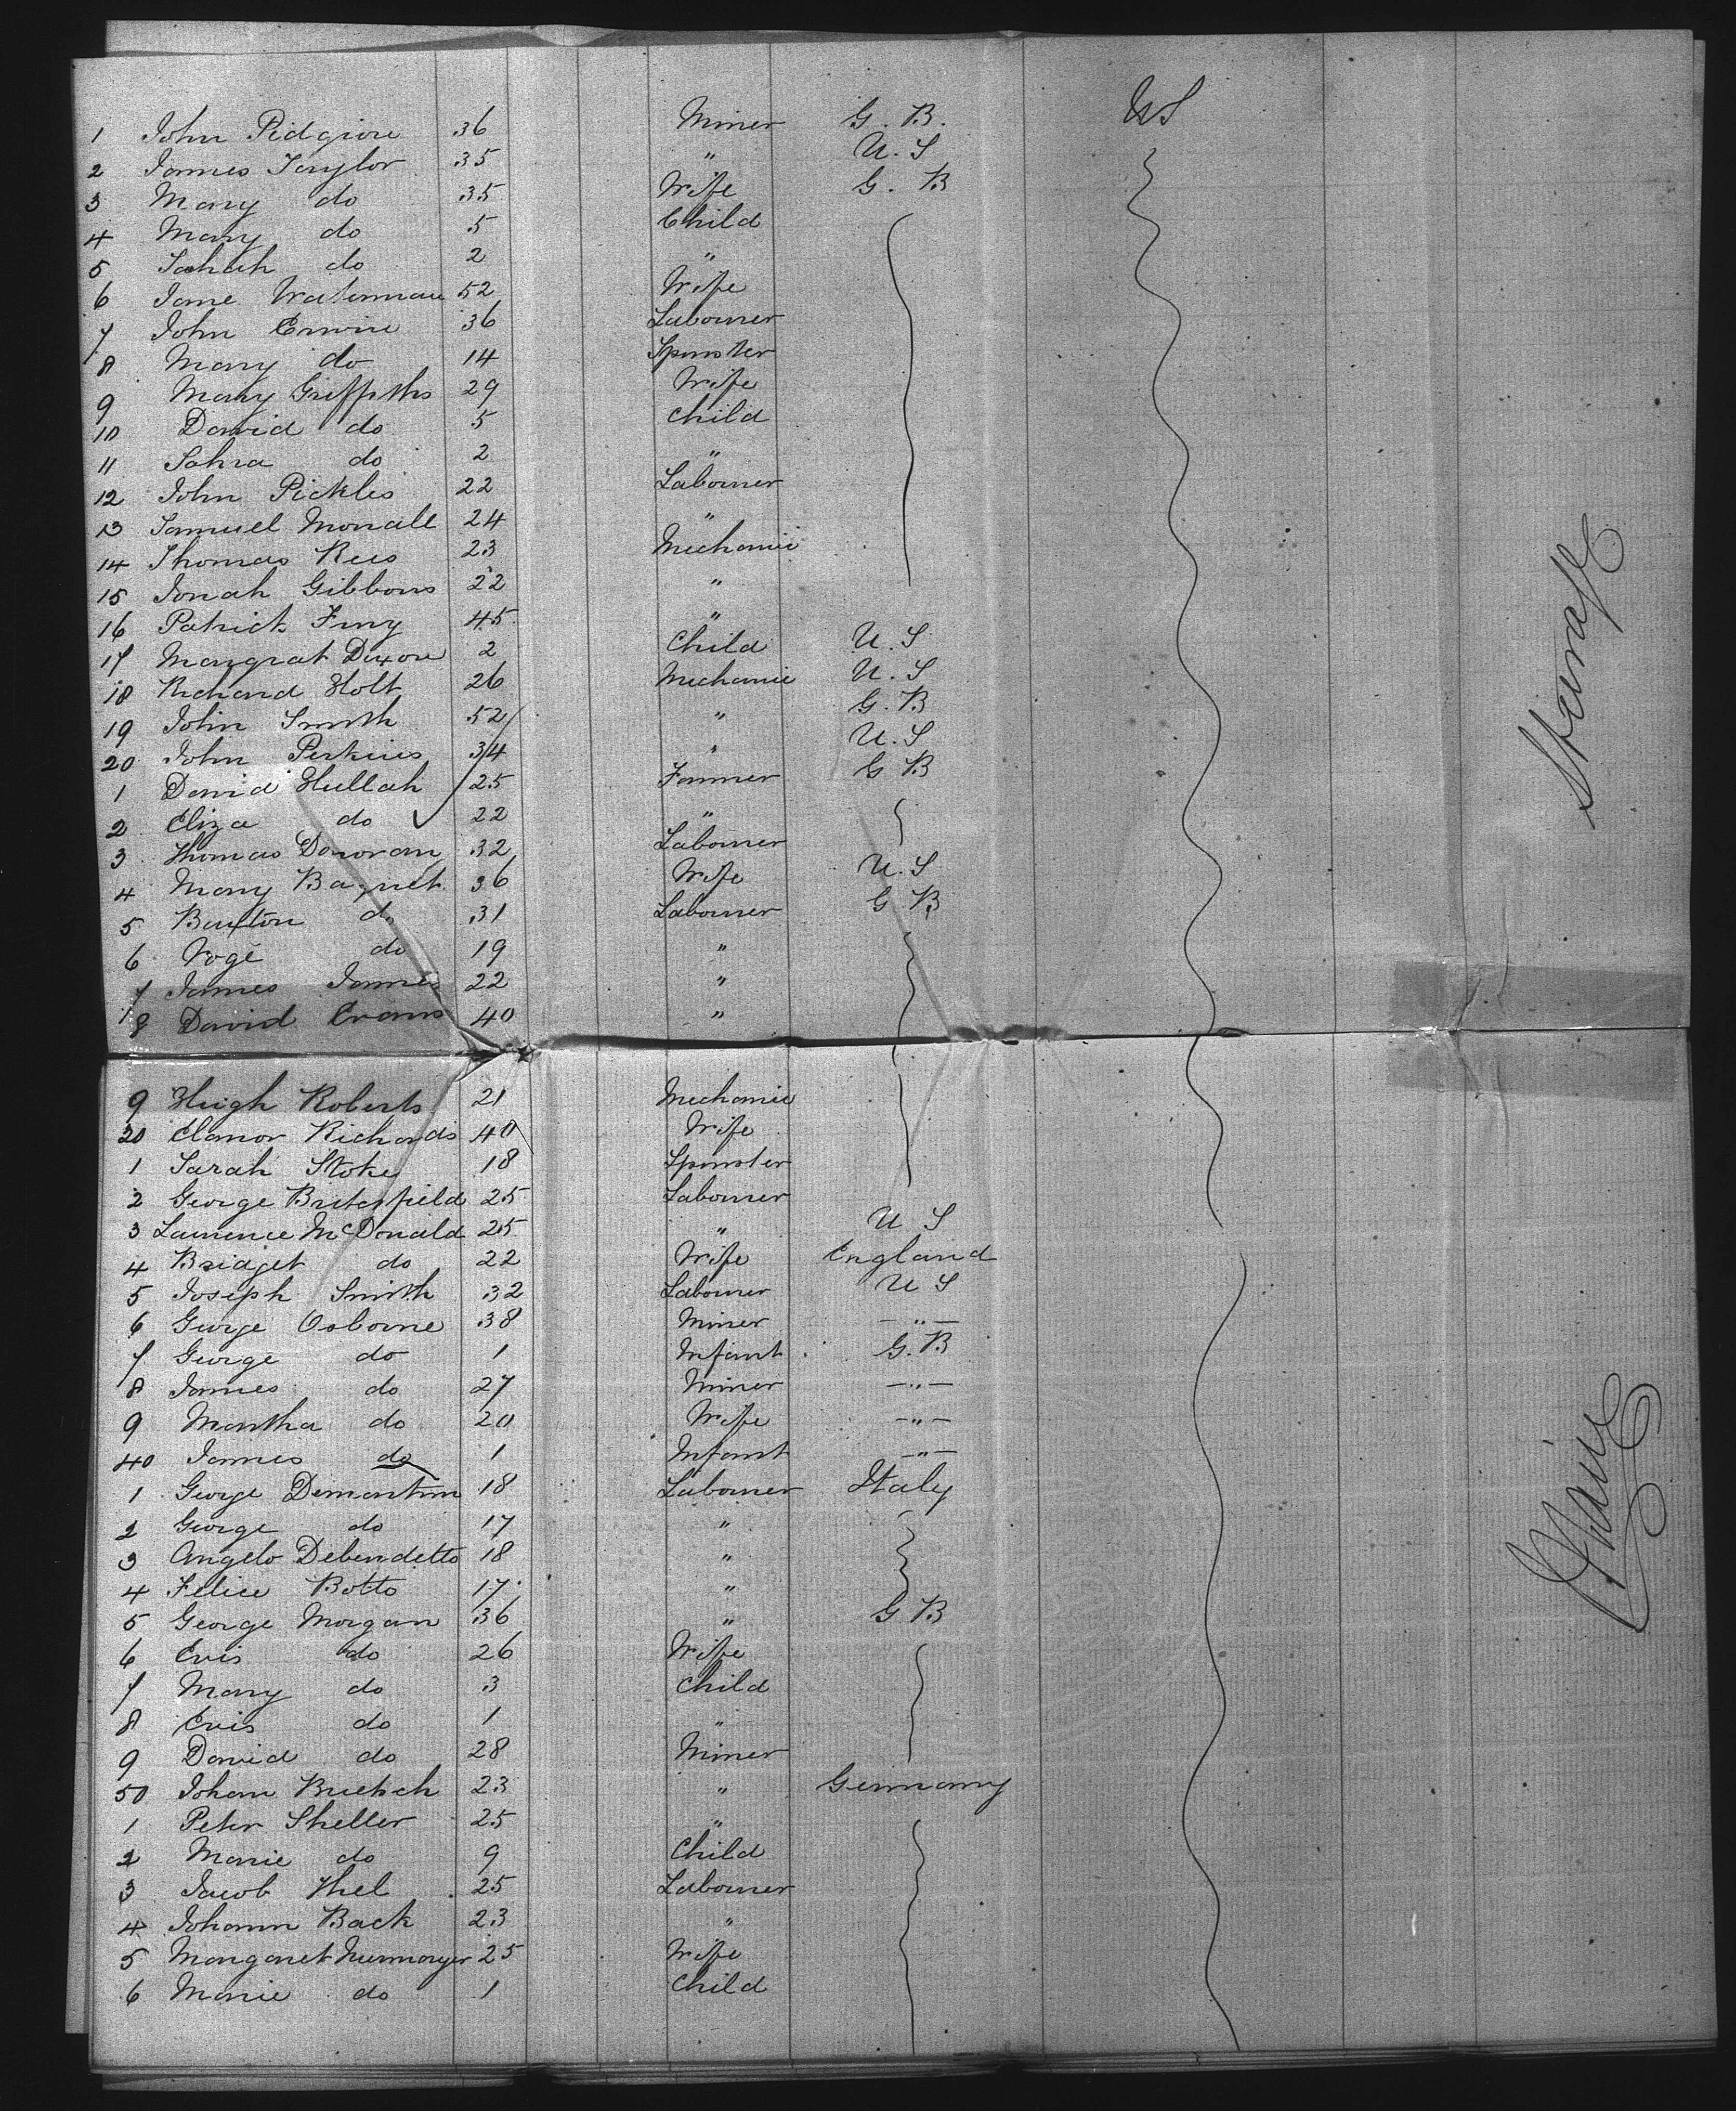 1 John Pidgion 36 Miner G. B. US
2 James Taylor 35 " U. S
3 Mary do 35 Wife G. B
4 Mary do 5 Child
5 Sahah do 2 "
6 Jane Waterman 52 Wife
7 John Erwin 36 Labourer
8 Mary do 14 Spinster
9 Mary Griffiths 29 Wife
10 David do 5 Child
11 Sahra do 2 "
12 John Pickles 22 Labourer
13 Samuel 24 "
14 Thomas Rees 23 Mechanic
15 Jonah Gibbons 22 "
16 Patrick 45 "
17 Margrat Dixon 2 Child U. S
18 Richard Holt 26 Mechanic U. S
19 John Smith 52 " G. B
20 John Perkins 34 " U. S
1 David Hullah 25 Farmer G B
2 Eliza do 22 "
3 Thomas Donovan 32 Labourer
4 Mary 36 Wife U. S
5 Burton do 31 Labourer G B
6 do 19 "
7 James James 22 "
8 David Evans 40 "
9 Hugh Roberts 21 Mechanic
30 Elanor Richards 40 Wife
1 Sarah Stoke 18 Spinster
2 George 25 Labourer
3 Laurence McDonald 25 " U S
4 Bridget do 22 Wife England
5 Joseph Smith 32 Labourer U S
6 George Osborne 38 Miner — " —
7 George do 1 Infant G. B
8 James do 27 Miner — " —
9 Martha do 20 Wife — " —
40 James do 1 Infant — " —
1 George 18 Labourer Italy
2 George do 17 "
3 Angelo Debendetto 18 "
4 Felice Botto 17 "
5 George Morgan 36 " G B
6 Evis do 26 Wife
7 Mary do 3 Child
8 Evis do 1 "
9 David do 28 Miner
50 Johan 23 " Germany
1 Peter Sheller 25 "
2 Marie do 9 Child
3 Jacob Thel 25 Labourer
4 Johann Back 23 "
5 Margaret 25 Wife
6 Marie do 1 Child
Steerage